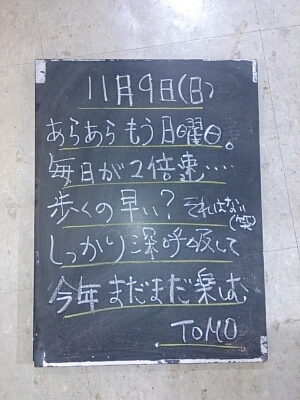 11月9日(日)
あらあらもう月曜日。
毎日が2倍速‥‥
歩くの早い？それはない(笑)
しっかり深呼吸して
今年まだまだ楽しむ
TOMO